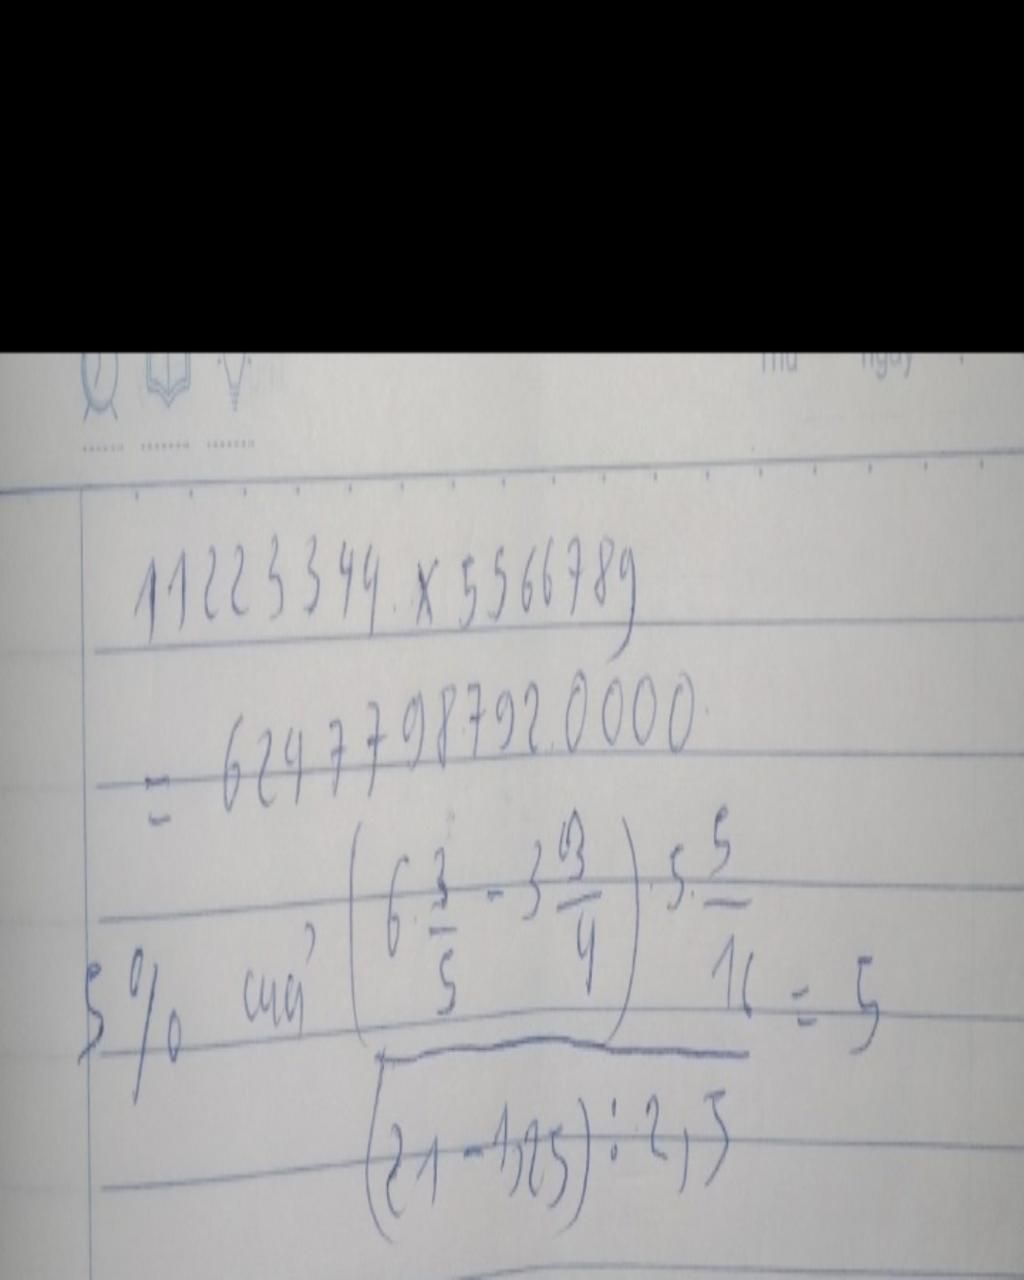 Thứ ngày
11223344 x 5566789
= 62477987920000
5% của (6 3/5 - 3 3/4) . 5 5/16 / (21 - 1,25) : 2,5 = 5